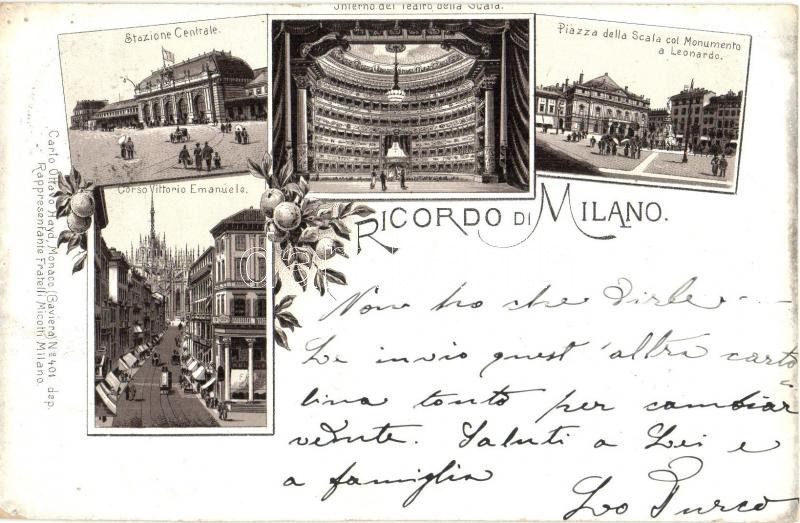 Interno del Teatro della Scala.
Stazione Centrale.
Piazza della Scala col Monumento
a Leonardo.
Corso Vittorio Emanuele.
RICORDO DI MILANO.
Carlo Ottavo Hayd, Monaco (Baviera) No 401 dep.
Rappresentante Fratelli Micotti Milano.
Non ho che dirle ---
Le invio quest'altra carto
lina tanto per cambiar
vedute. Saluti a Lei e
a famiglia
Lo Turco